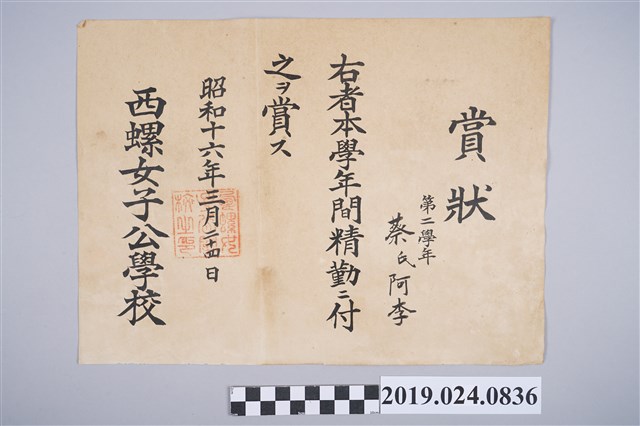 賞狀
第二學年
蔡氏阿李
右者本學年間精勤ニ付
之ヲ賞ス
昭和十六年三月二十四日
西螺女子公學校
2019.024.0836